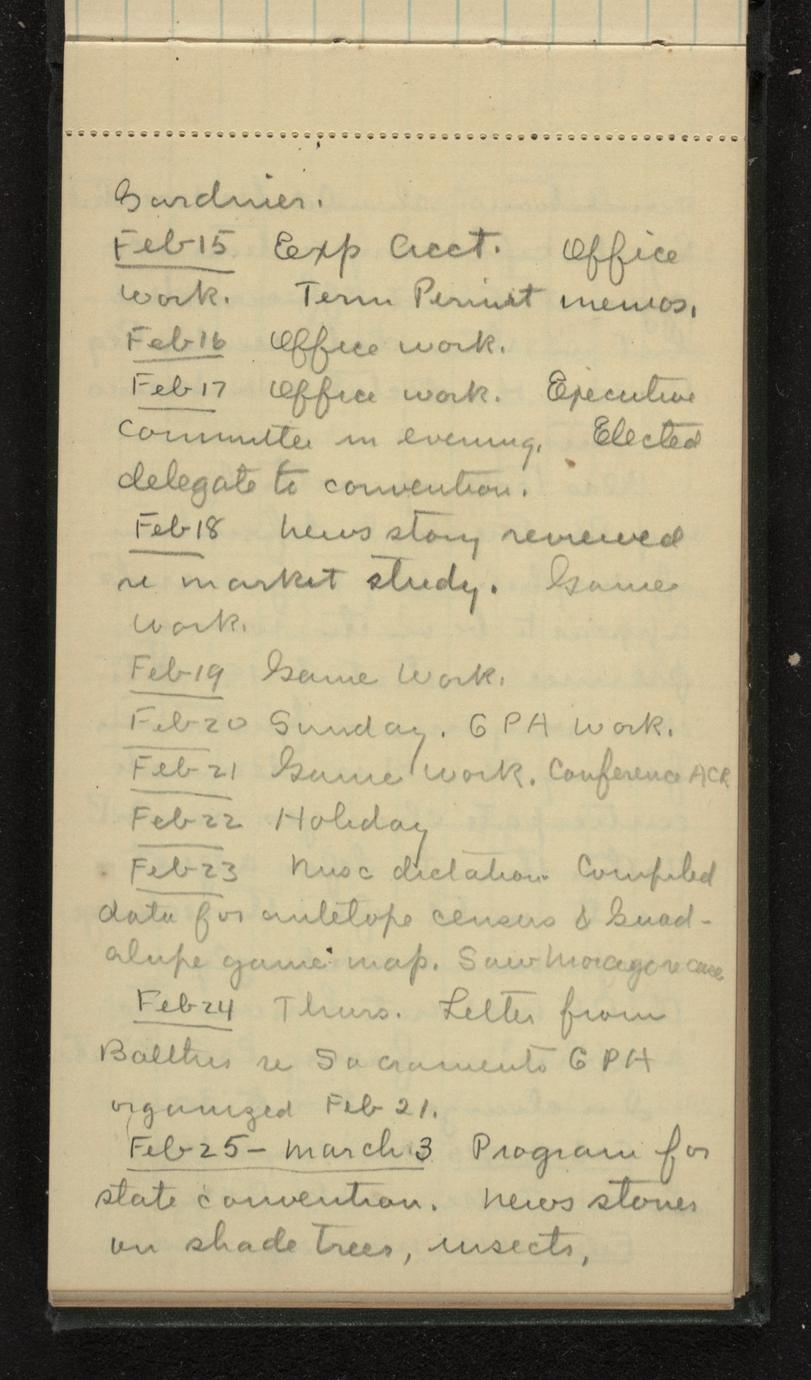 Gardner.
Feb 15 Exp Acct. Office
work. Term Permit memos.
Feb 16 Office work.
Feb 17 Office work. Executive
committee in evening. Elected
delegate to convention.
Feb 18 News story reviewed
re market study. Game
work.
Feb 19 Game Work.
Feb 20 Sunday. GPA work.
Feb 21 Game work. Conference ACR
Feb 22 Holiday
Feb 23 Misc dictation. Compiled
data for antelope census & Guad-
alupe game map. Saw re case
Feb 24 Thurs. Letter from
re Sacramento GPA
organized Feb 21.
Feb 25 - March 3 Program for
state convention. News stories
on shade trees, insects,